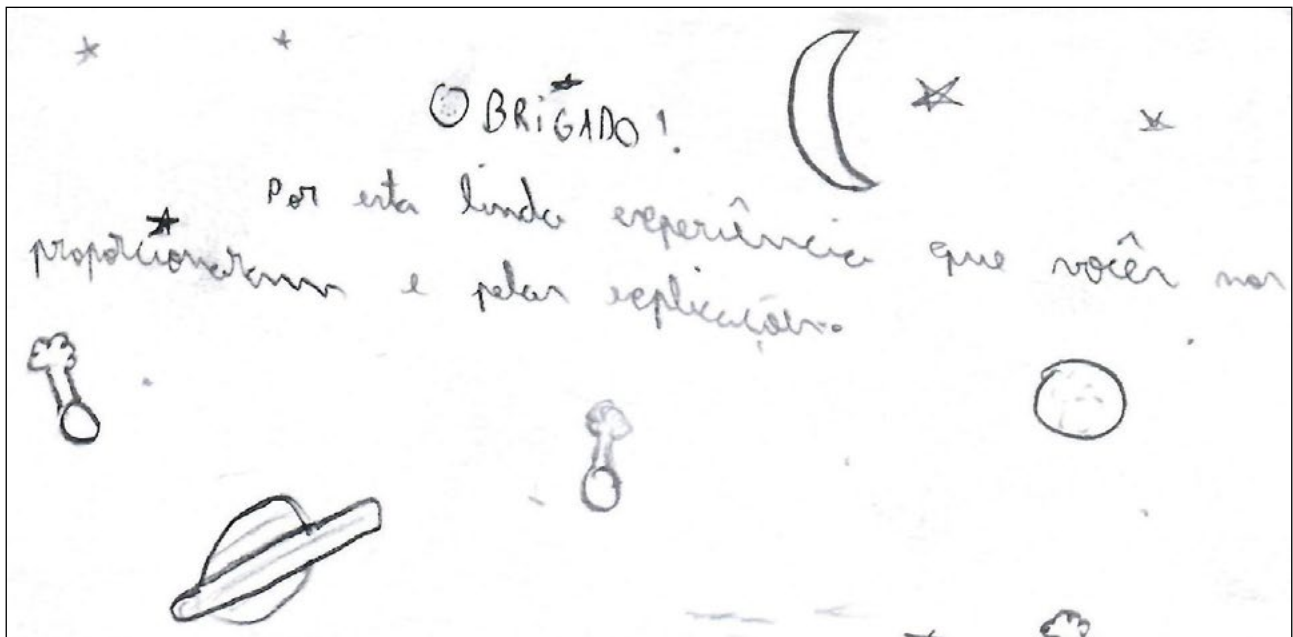 OBRIGADO!
Por esta linda experiência que vocês nos
proporcionaram e pelas explicações.